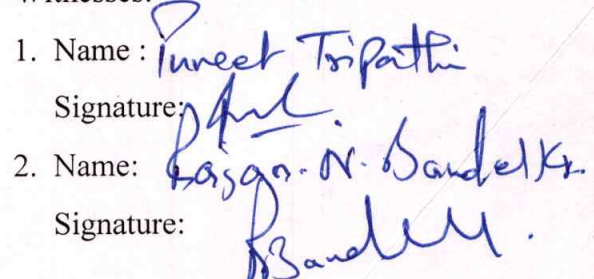 Witnesses:
1. Name : Puneet Tripathi
Signature:
2. Name: N. Bandelkr.
Signature: